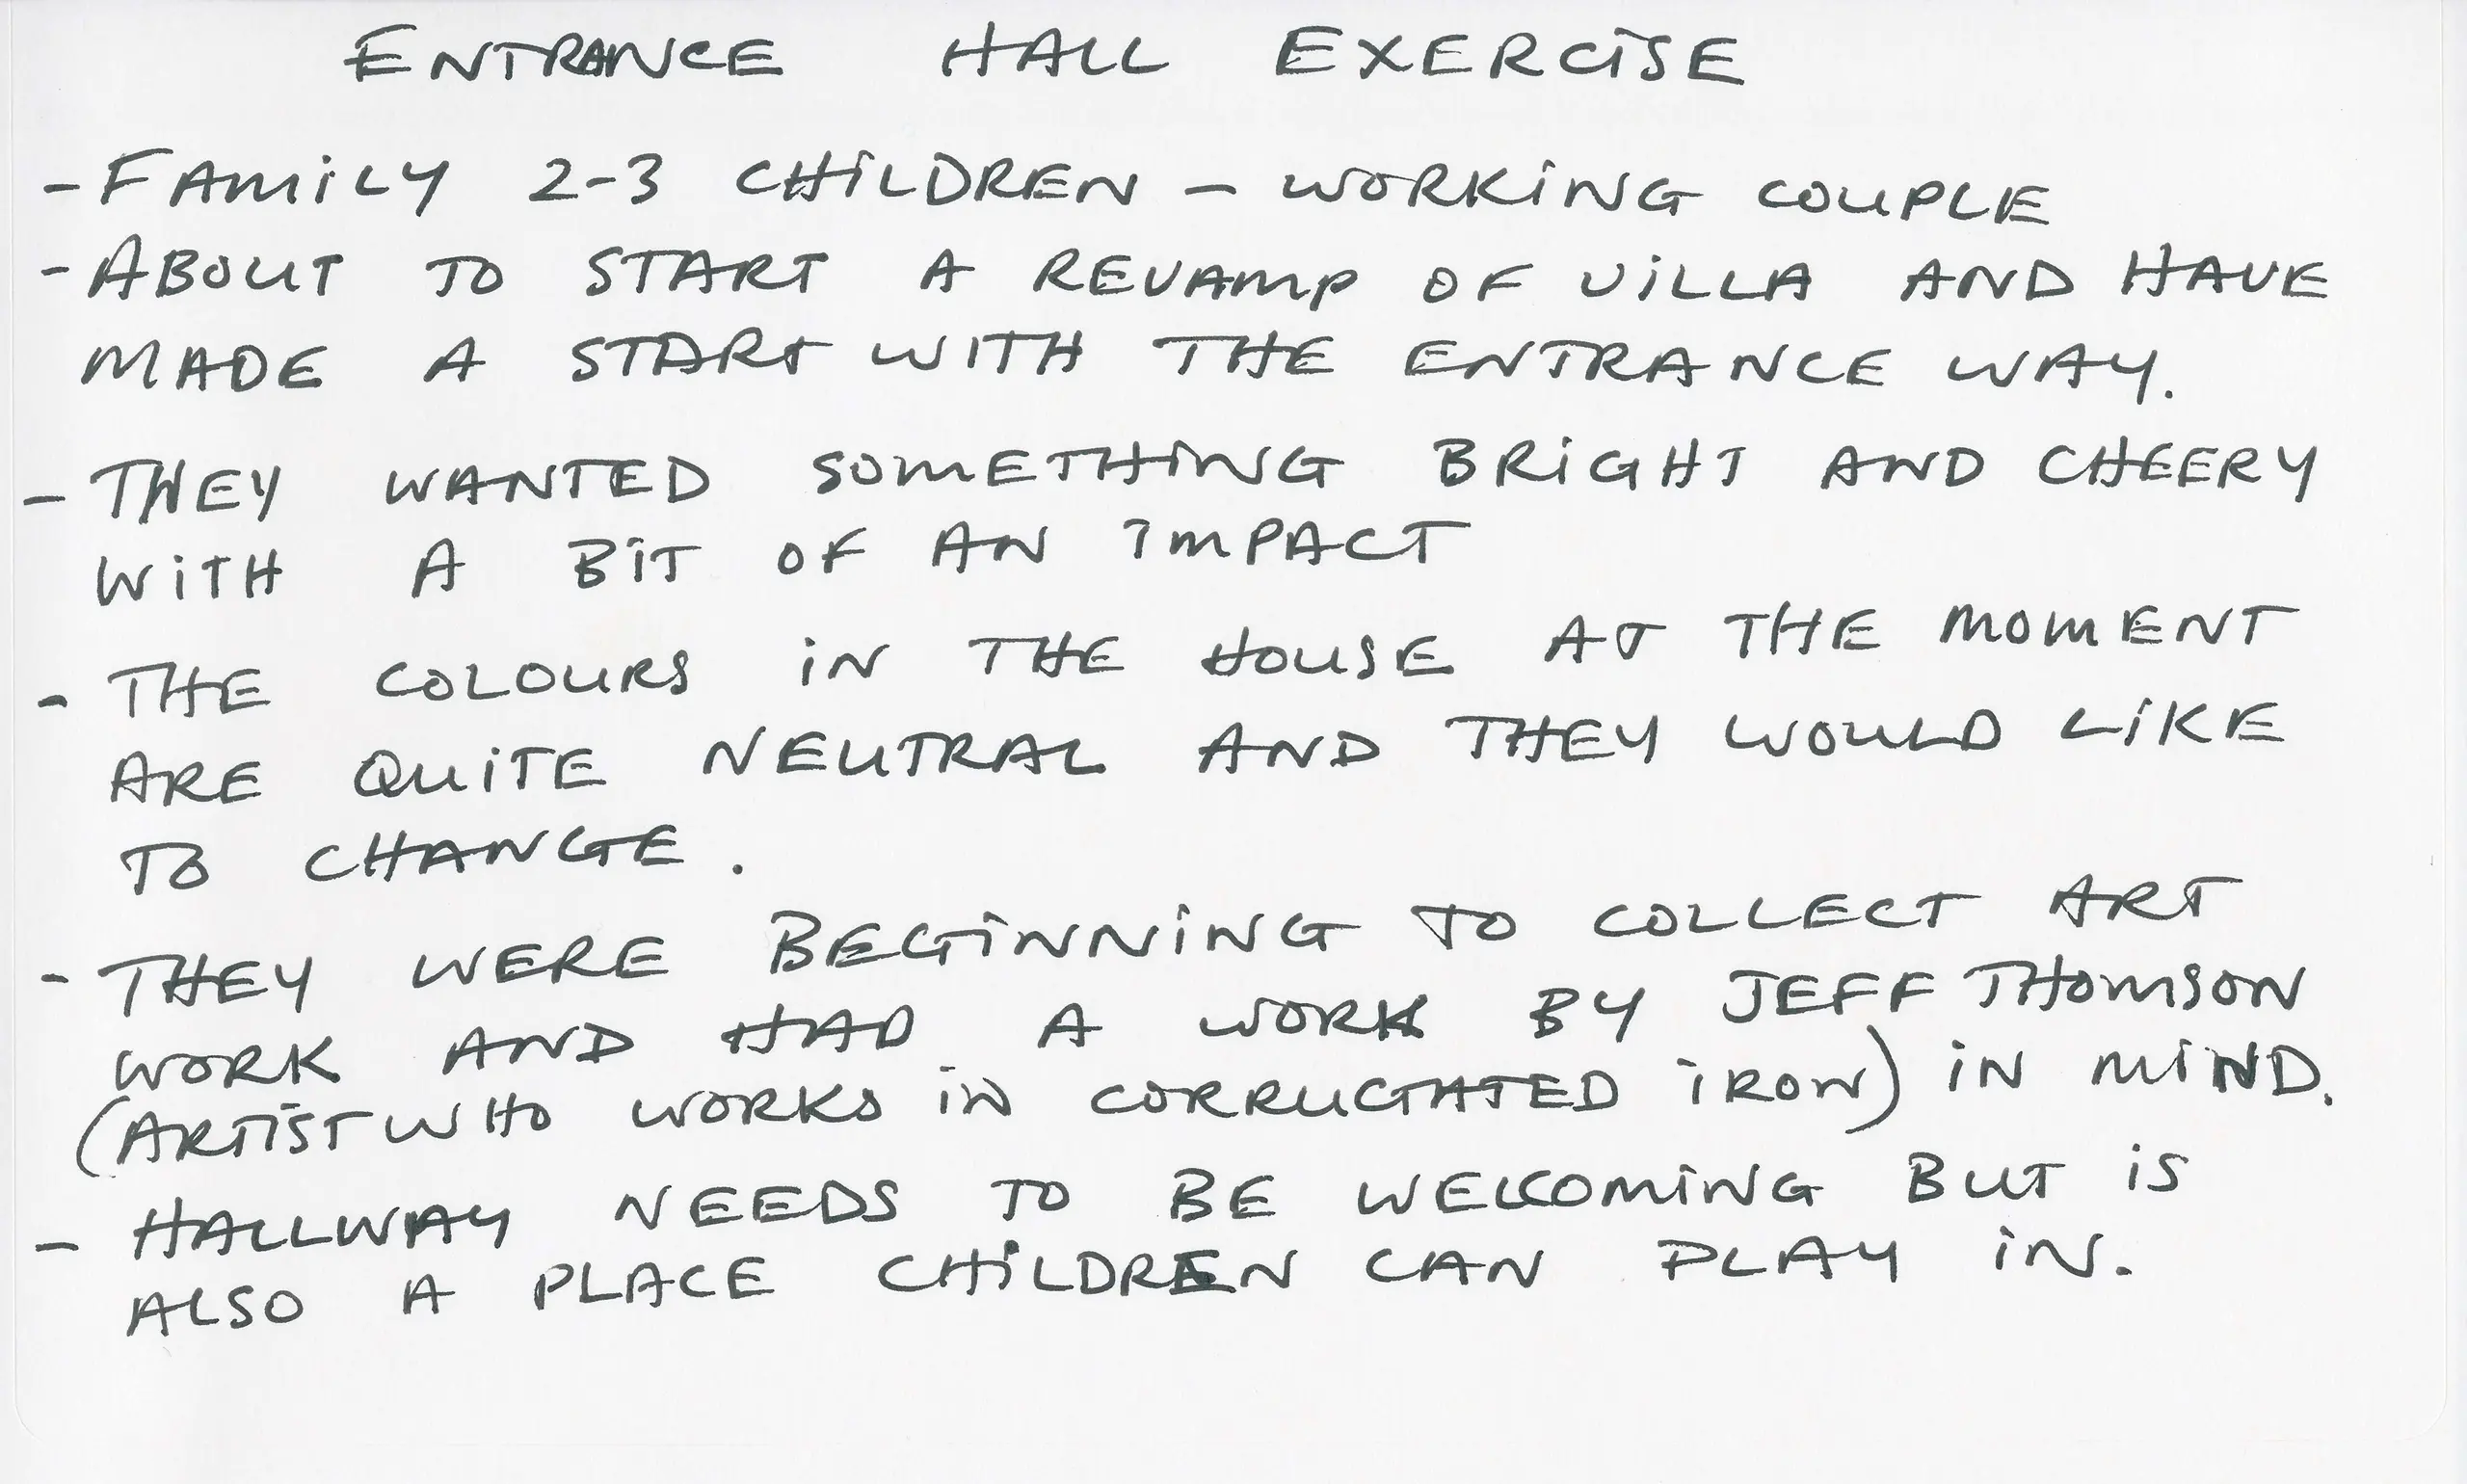 ENTRANCE HALL EXERCISE
- FAMILY 2-3 CHILDREN - WORKING COUPLE
- ABOUT TO START A REVAMP OF VILLA AND HAVE
MADE A START WITH THE ENTRANCE WAY.
- THEY WANTED SOMETHING BRIGHT AND CHEERY
WITH A BIT OF AN IMPACT
- THE COLOURS IN THE HOUSE AT THE MOMENT
ARE QUITE NEUTRAL AND THEY WOULD LIKE
TO CHANGE.
- THEY WERE BEGINNING TO COLLECT ART
WORK AND HAD A WORK BY JEFF THOMSON
(ARTIST WHO WORKS IN CORRUGATED IRON) IN MIND.
- HALLWAY NEEDS TO BE WELCOMING BUT IS
ALSO A PLACE CHILDREN CAN PLAY IN.